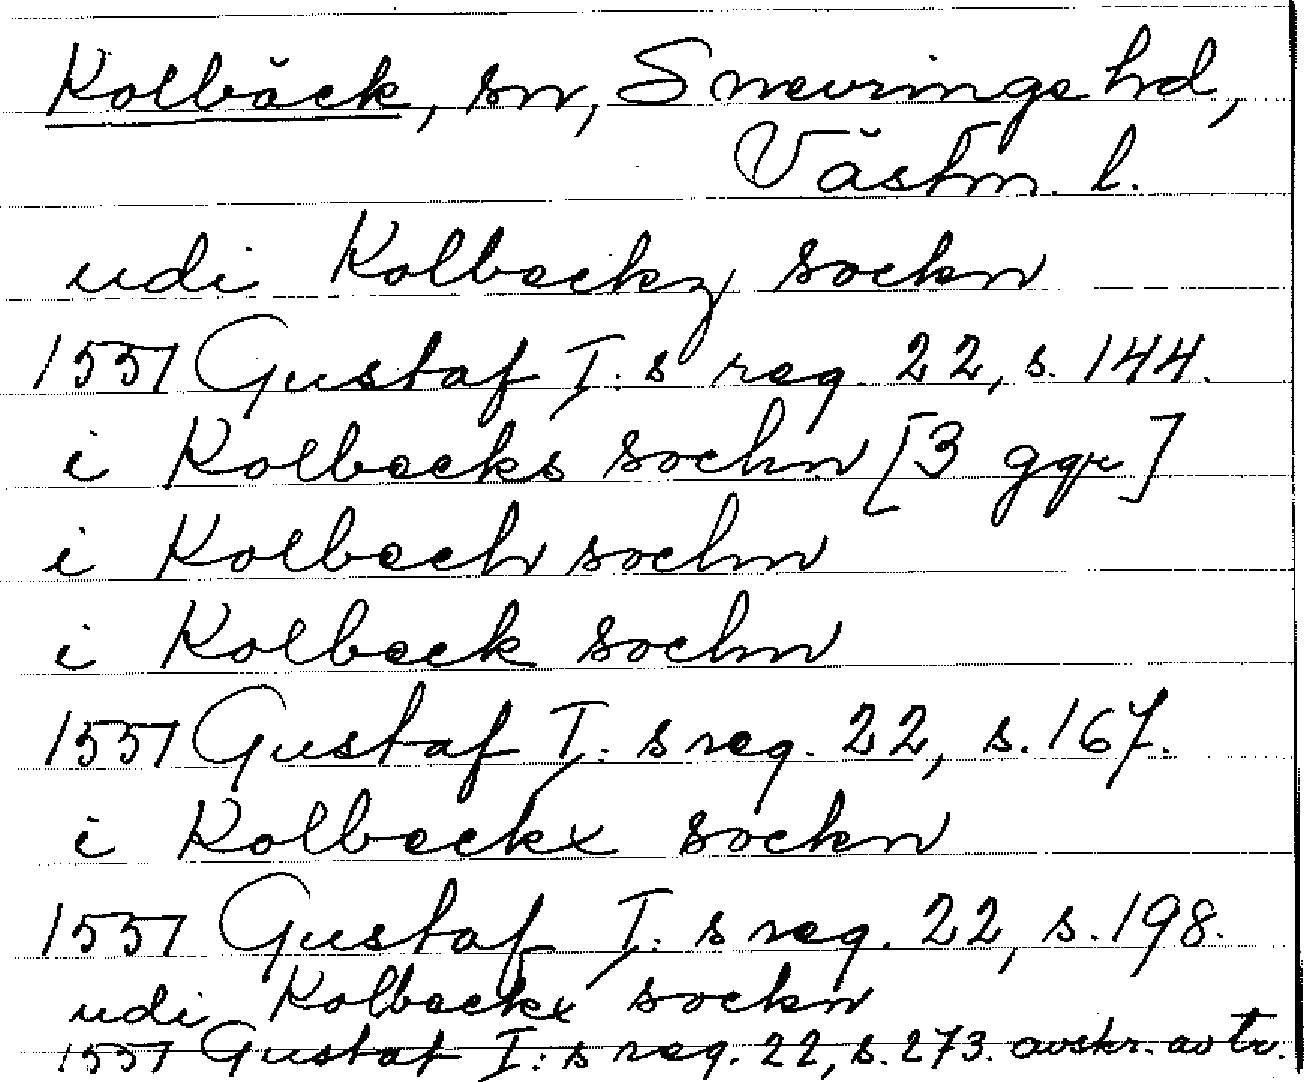 Kolbäck, sn, Snevringe hd,
Västm. l.
udi Kolbeckz sockn
1551 Gustaf I:s reg. 22, s. 144.
i Kolbecks sochn [3 ggr]
i Kolbech sochn
i Kolbeck sochn
1551 Gustaf I:s reg. 22, s. 167.
i Kolbeckx sockn
1551 Gustaf I:s reg. 22, s. 198.
udi Kolbeckx sockn
1551 Gustaf I:s reg. 22, s. 273. avskr. av tr.